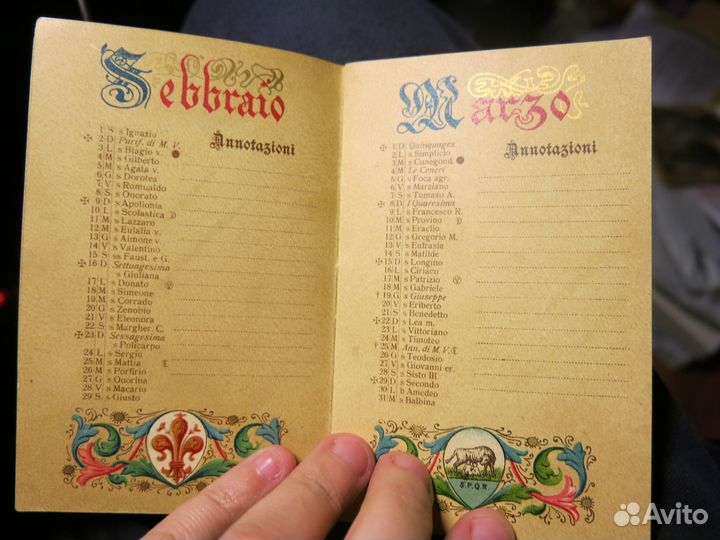 Febbraio
Annotazioni
1 S s Ignazio
✠ 2 D Purif. di M. V.
3 L s Biagio v. ●
4 M s Gilberto
5 M s Agata v.
6 G s Dorotea
7 V s Romualdo
8 S s Onorato
✠ 9 D s Apollonia
10 L s Scolastica
11 M s Lazzaro
12 M s Eulalia v.
13 G s Aimone v.
14 V s Valentino
15 S ss Faust. e G.
✠ 16 D Settuagesima
s Giuliana
17 L s Donato
18 M s Simeone
19 M s Corrado
20 G s Zenobio
21 V s Eleonora
22 S s Margher. C.
✠ 23 D Sessagesima
s Policarpo
24 L s Sergio
25 M s Mattia
26 M s Porfirio
27 G s Onorina
28 V s Macario
29 S s Giusto
Marzo
Annotazioni
✠ 1 D Quinquages.
2 L s Simplicio
3 M s Cunegond. ●
4 M Le Ceneri
5 G s Foca agr.
6 V s Marziano
7 S s Tomaso A.
✠ 8 D I Quaresima
9 L s Francesco R.
10 M s Provino
11 M s Eraclio
12 G s Gregorio M.
13 V s Eufrasia
14 S s Matilde
✠ 15 D s Longino
16 L s Ciriaco
17 M s Patrizio
18 M s Gabriele
† 19 G s Giuseppe
20 V s Eriberto
21 S s Benedetto
✠ 22 D s Lea m.
23 L s Vittoriano
24 M s Timoteo
† 25 M Ann. di M. V.
26 G s Teodosio
27 V s Giovanni er.
28 S s Sisto III
✠ 29 D s Secondo
30 L b Amedeo
31 M s Balbina
S.P.Q.R
Avito